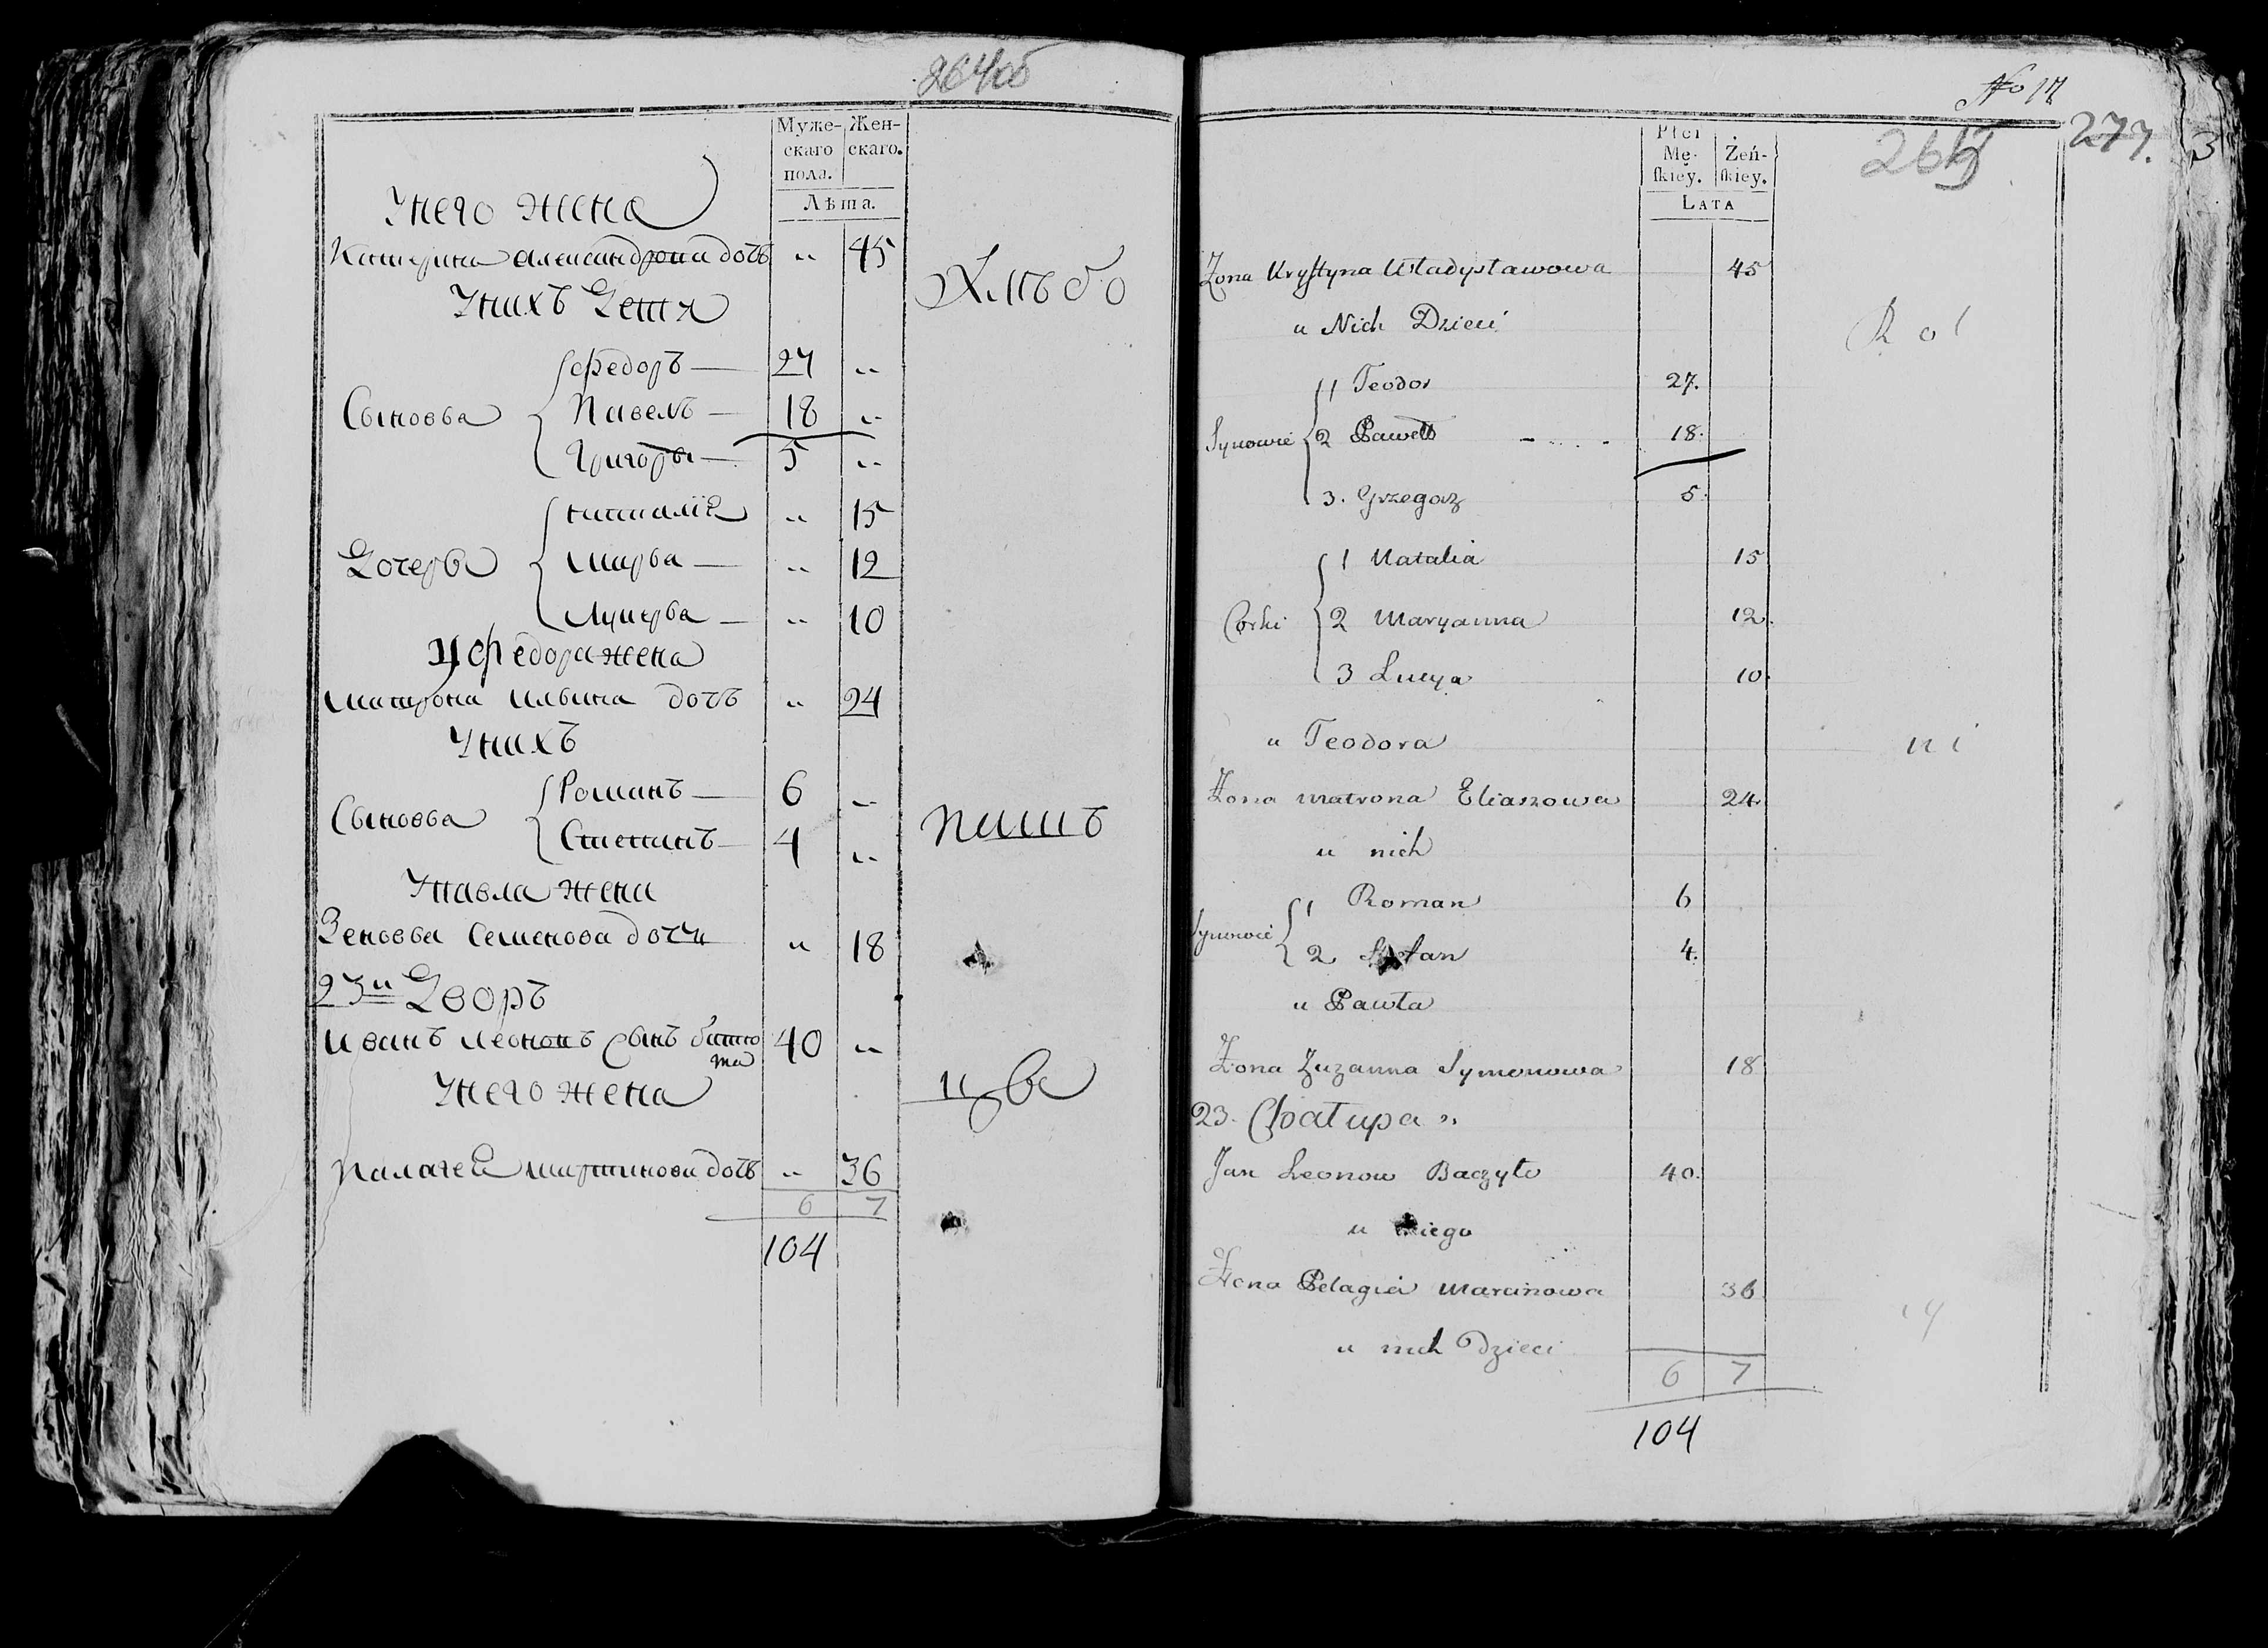 264об
Муже- Жен-
скаго скаго.
пола.
Лѣта.
У него жена
Катерина Александрова дочь „ 45
Хлѣбо
У нихъ Дети
Сыновья
Федоръ — 27 „
Павелъ — 18 „
Григорь — 5 „
Дочерьи
Наталія „ 15
Марья — „ 12
Лукерья — „ 10
У Федора жена
Матрона Ильина дочь „ 24
У нихъ
Сыновья
Романъ — 6 „
Степанъ — 4 „
пашъ
У Павла жена
Зеновья Семенова дочи „ 18
23й Дворъ
Иванъ Леоновъ сынъ 40 „
У него жена
цы
Палагея Мартинова дочь „ 36
6 7
104
No 17
277. 3
265
Płci
Mę- Żeń-
skiey. skiey.
LATA
Żona Krystyna Władysławowa 45
u Nich Dzieci
Rol
Synowie
1 Teodor 27.
2 Paweł 18.
3. Grzegorz 5.
Corki
1 Natalia 15
2 Maryanna 12.
3 Lucya 10.
u Teodora
ni
Żona Matrona Eliaszowa 24.
u nich
Synowie
1 Roman 6
2 Stefan 4.
u Pawła
Żona Zuzanna Symonowa 18
23. Chałupa
Jan Leonow Baczyło 40.
u niego
Żona Pelagia Marcinowa 36
u nich Dzieci
6 7
104